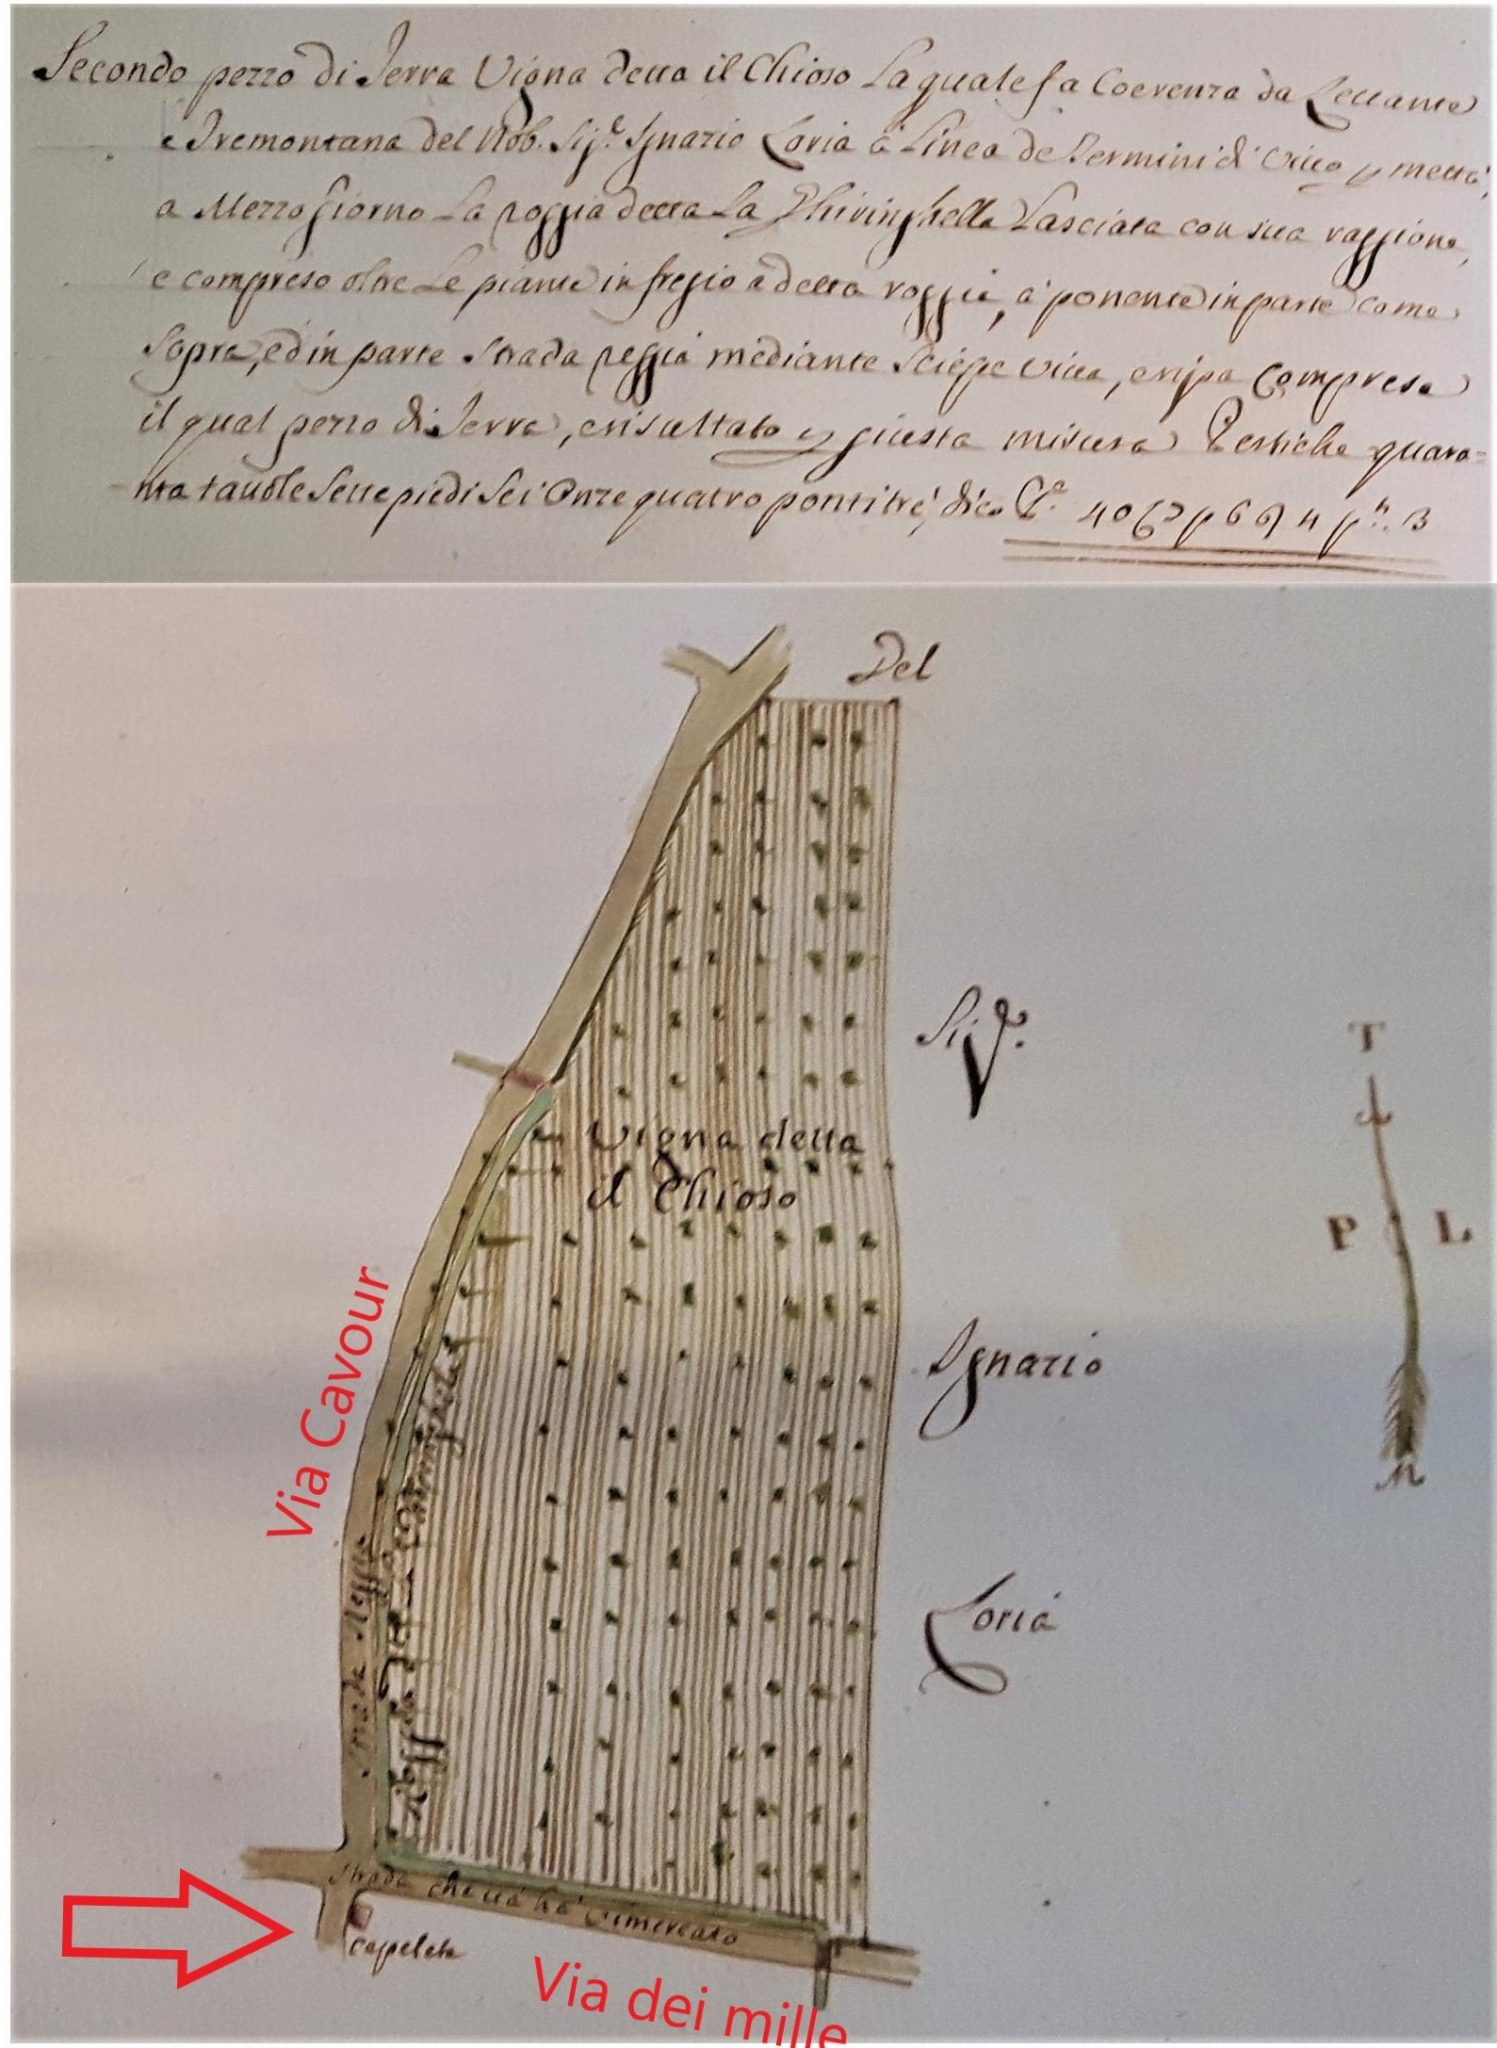 Secondo pezzo di Terra Vigna detta il Chioso La quale fa Coerenza da Leuante
e Tremontana del Nob. Sig.r Ignazio Loria à Linea de Termini di Viuo p metta,
a Mezzo giorno La roggia detta La Ghiringhella Lasciata con sua raggione,
e compreso oltre Le piante in fregio a detta roggia, à ponente in parte come
sopra, ed in parte Strada Reggia mediante Sciepe viua, e ripa Compresa
il qual pezzo di Terra, e risultato p giusta misura Pertiche quara=
nta tauole Sette piedi Sei Onze quatro ponti tré, dico P.e 40
Del
Sig.r
Vigna detta
il Chioso
T
P L
M
Ignazio
Via Cavour
Loria
Strada Reggia
Roggia detta La Ghiringhella
Strada che uà hà Vimercato
Capeleta
Via dei mille